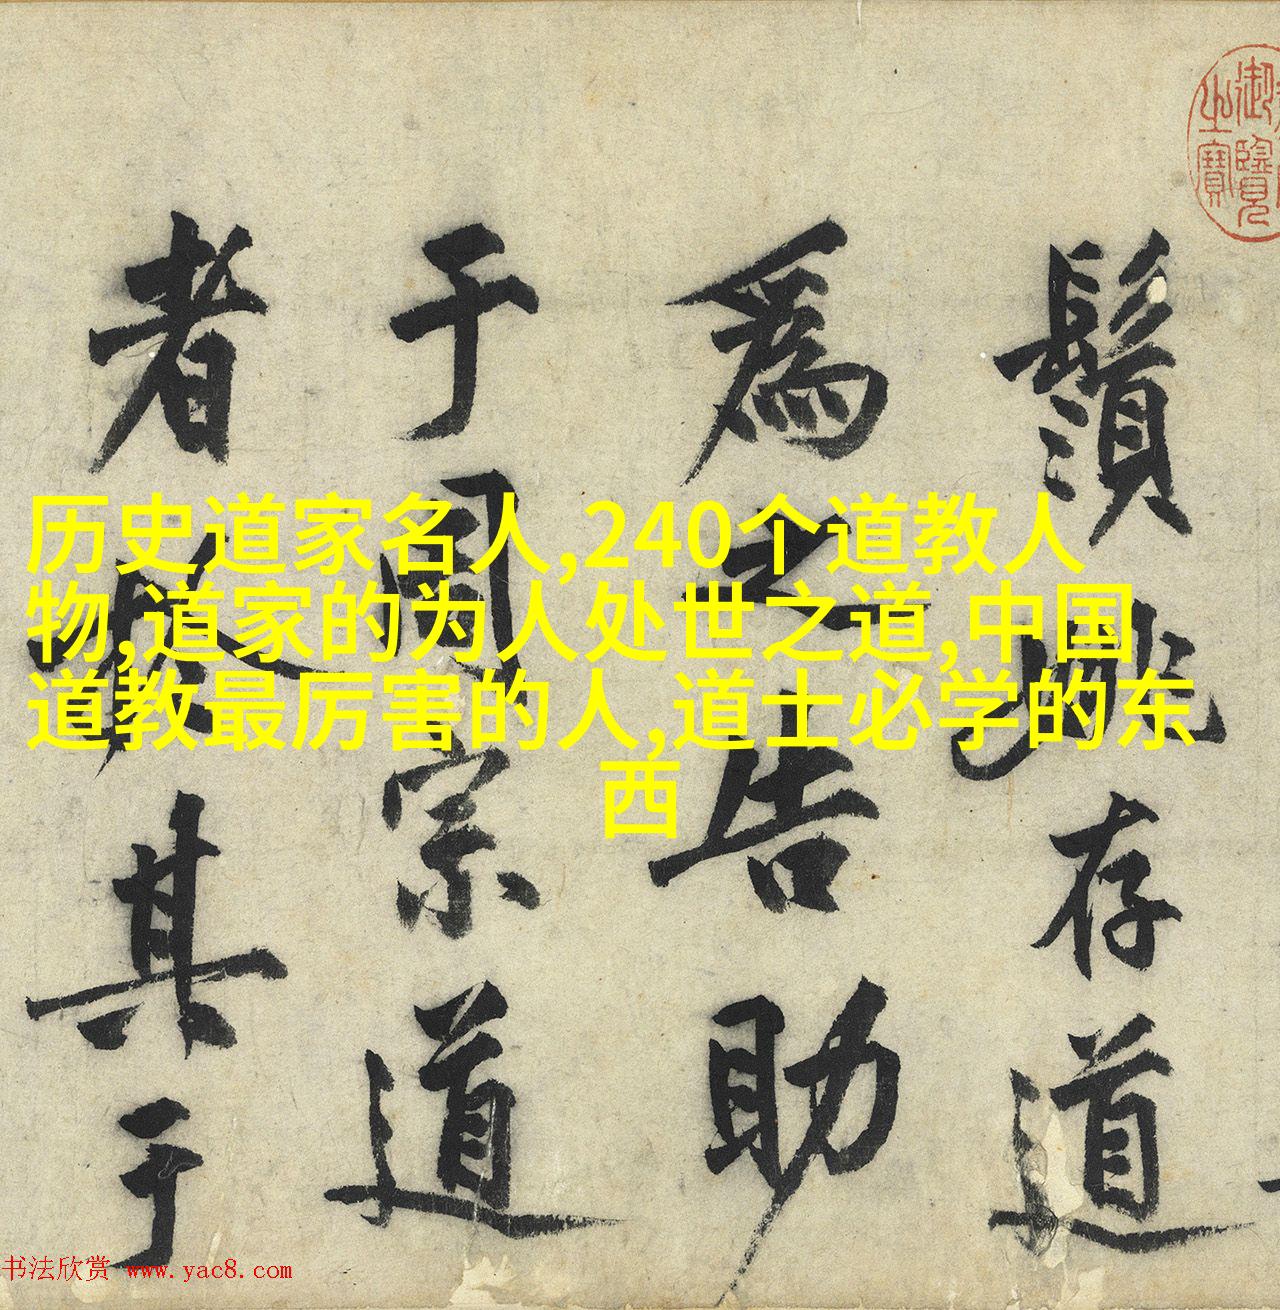 历史道家名人,240个道教人
物,道家的为人处世之道,中国
道教最厉害的人,道士必学的东
西
鬚姚存道
為之告助
于周宗道
者於其于
御覽
之寶
书法欣赏 www.yac8.com